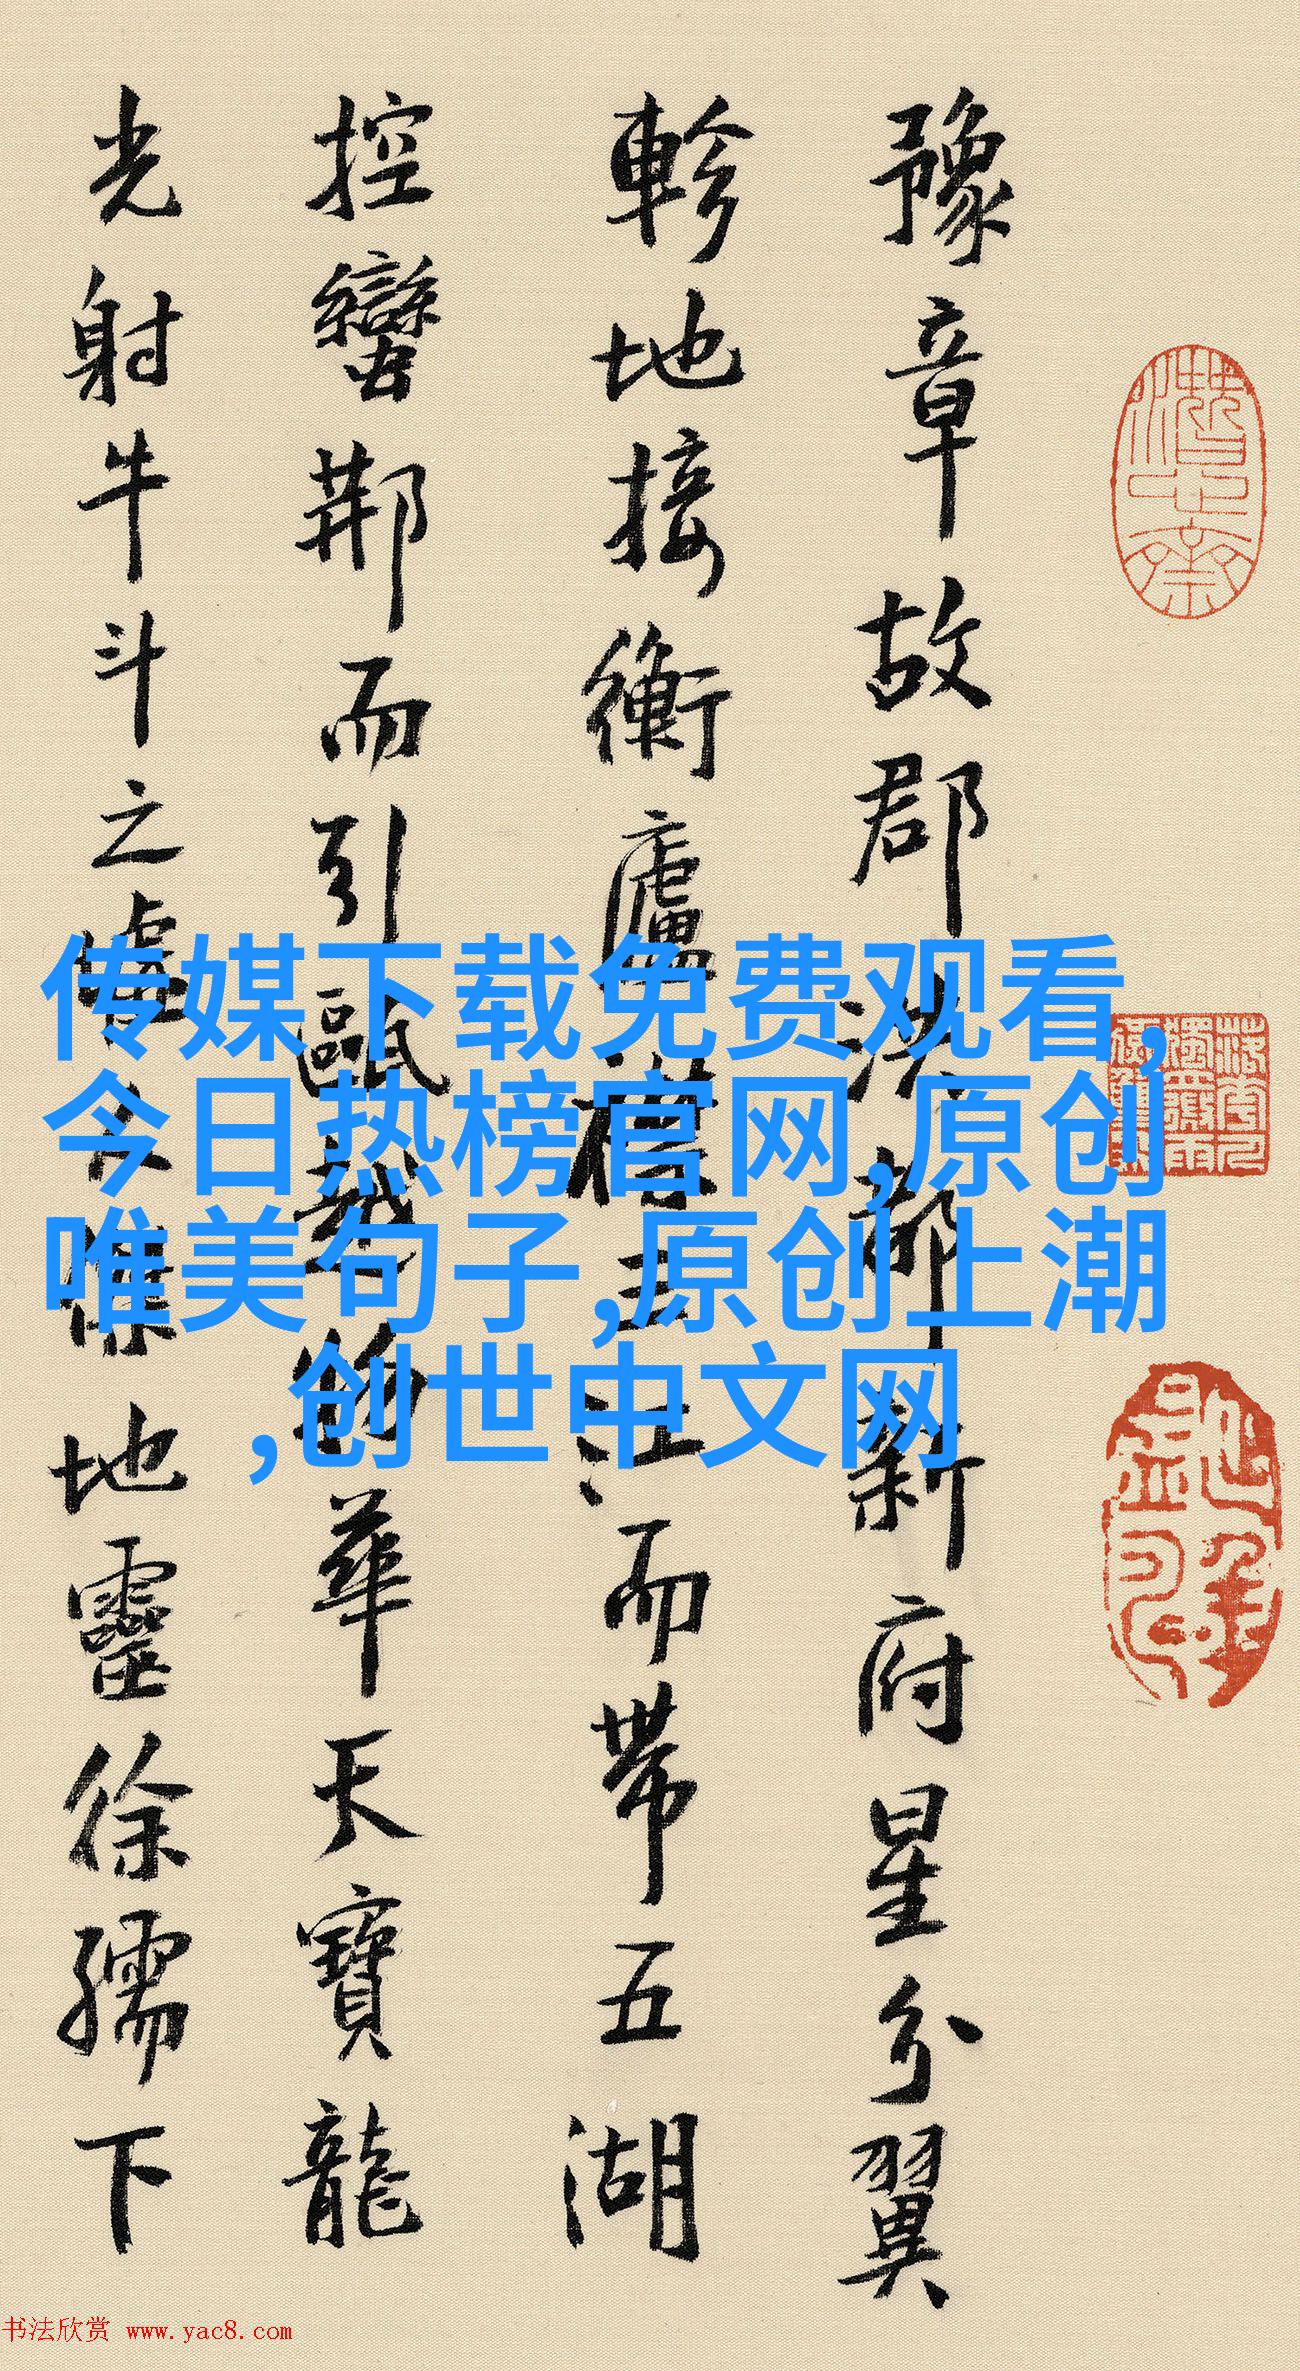 豫章故郡洪都新府星分翼
軫地接衡廬襟三江而帶五湖
控蠻荊而引甌越物華天寶龍
光射牛斗之墟人傑地靈徐孺下
传媒下载免费观看,
今日热榜官网,原创
唯美句子,原创上潮
,创世中文网
书法欣赏 www.yac8.com